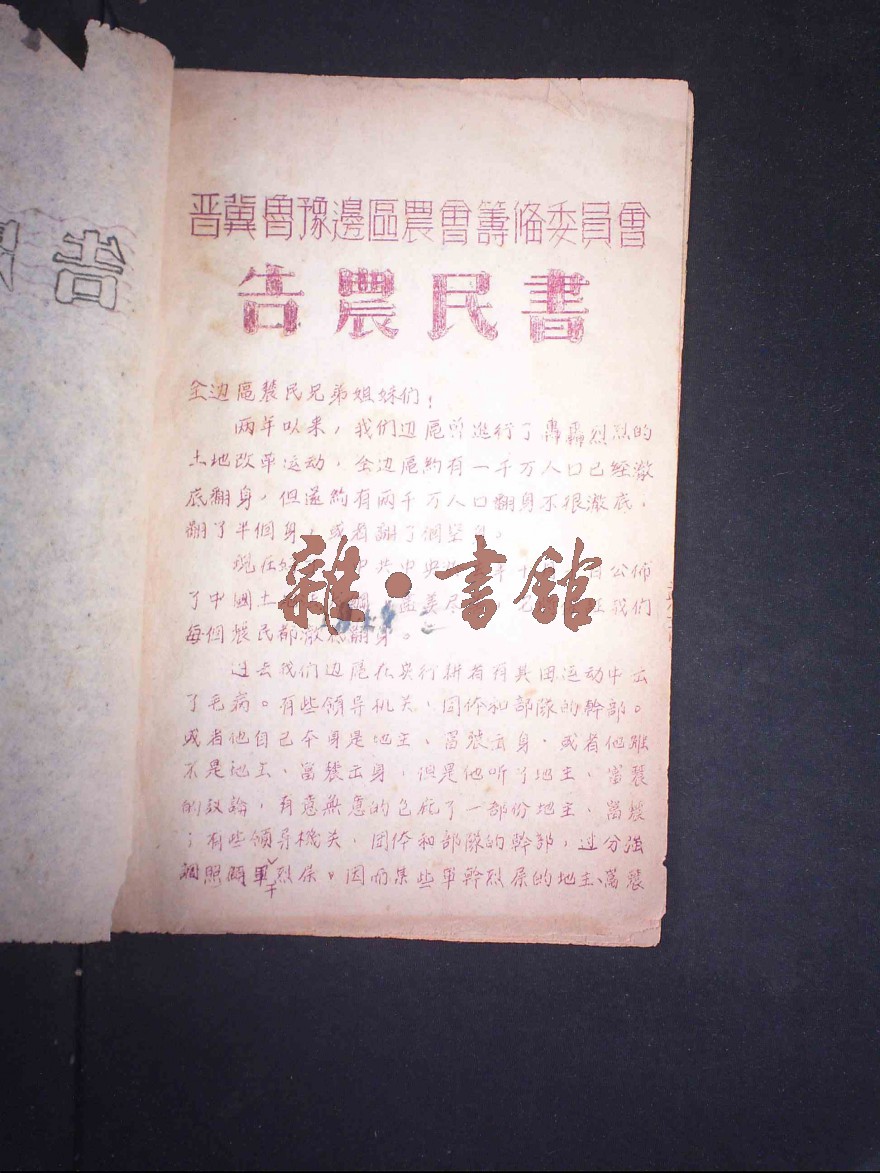 晋冀魯豫邊區農會籌備委員會
告農民書
全边區農民兄弟姐妹们！
两年以来，我们边區所進行了轟轟烈烈的
土地改革运动，全边區約有一千万人口已經澈
底翻身，但还約有兩千万人口翻身不很澈底，
翻了半個身，或者翻了個空身。
現在 中共中央 公佈
了中國土 我们
每個農民都澈底翻身。
过去我们边區在实行耕者有其田运动中出
了毛病。有些領导机关、団体和部隊的幹部。
或者他自己本身是地主、富農出身，或者他雖
不是地主、富農出身，但是他听了地主、富農
的 論，有意無意的包庇了一部份地主、富農
；有些領导機关、団体和部隊的幹部，过分强
調照顾軍干烈屬。因而某些軍幹烈屬的地主、富農
雜·書館
告